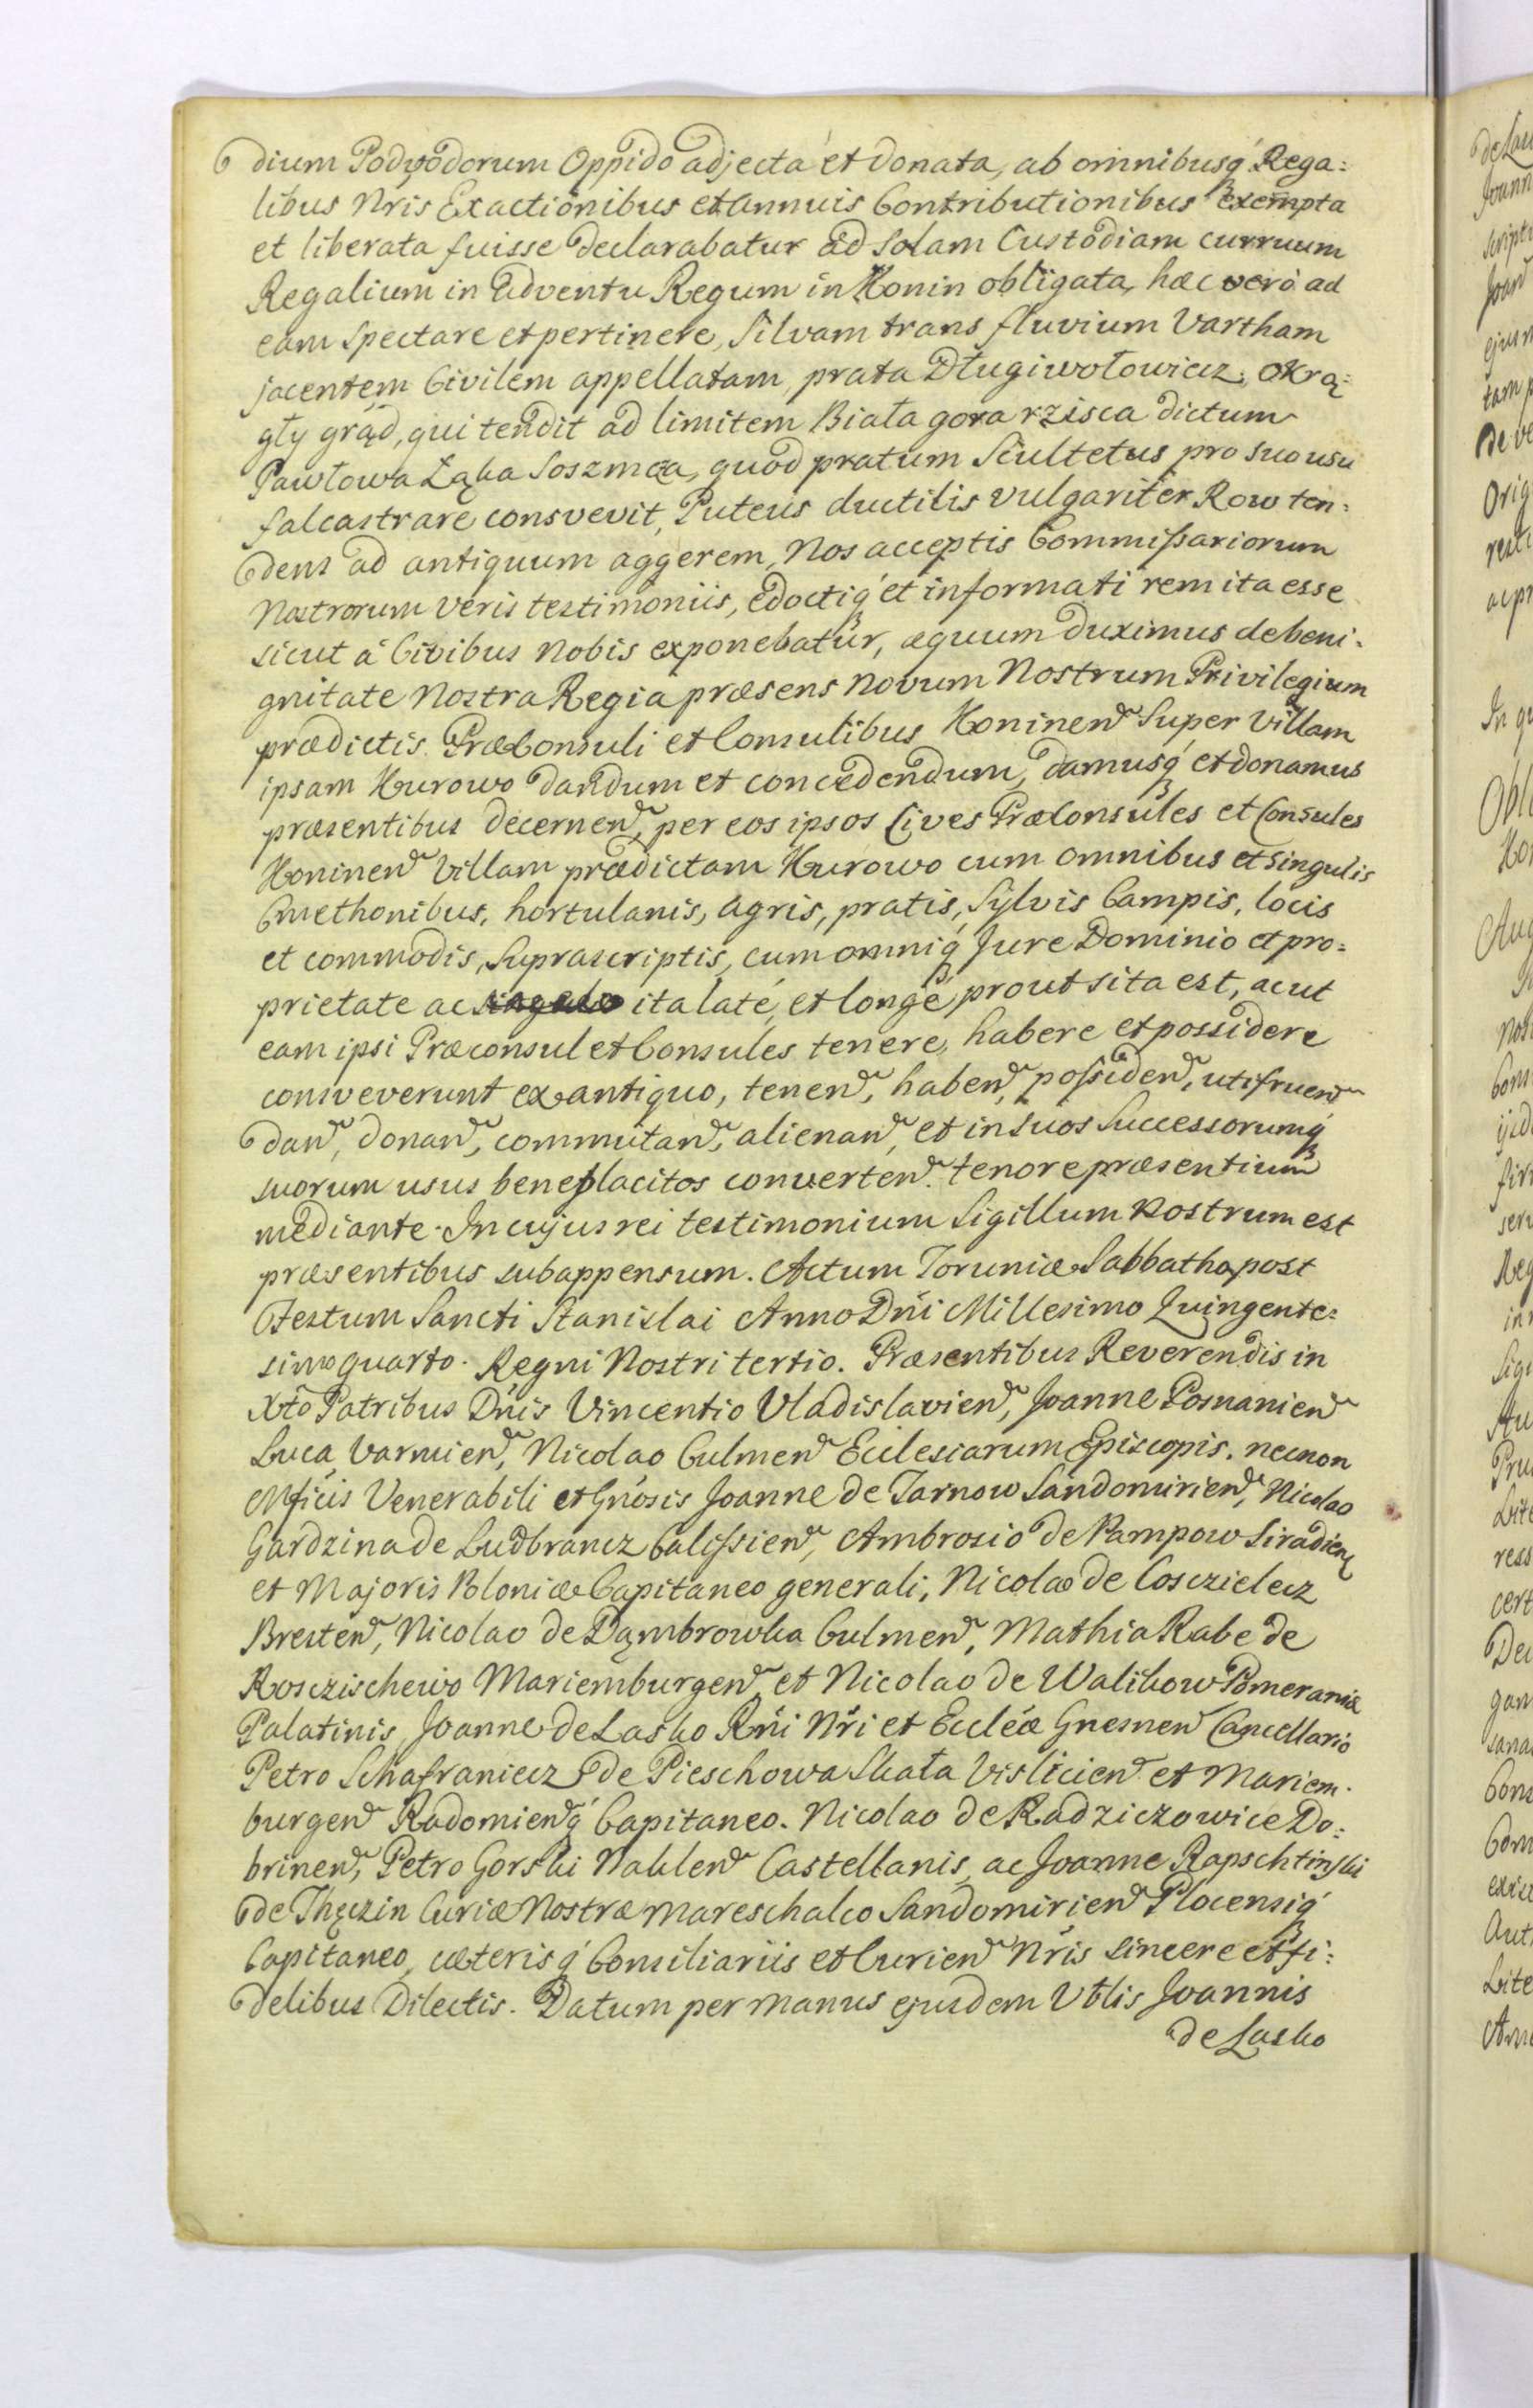 dium Podwodorum Oppido adjecta et donata, ab omnibusq́ Rega:
libus Nris Exactionibus et Annuis Contributionibus exempta
et liberata fuisse declarabatur ad Solam Custodiam curruum
Regalium in Adventu Regum in Konin obligata, hæc verò ad
eam Spectare et pertinere, Silvam trans fluvium Vartham
jacentem Civilem appellatam, prata Długiwołowicz, Okrą:
gły grąd, qui tendit ad limitem Biała gora rzisca dictum
Pawłowa Łąka Soszmca, quod pratum Scultetus pro suo usu
falcastrare consvevit, Puteus ductilis vulgariter Row ten:
dens ad antiquum aggerem, Nos acceptis Commissariorum
Nostrorum veris testimoniis, edoctiq́ et informati rem ita esse
sicut à Civibus Nobis exponebatur, æquum duximus de beni:
gnitate Nostra Regia præsens novum Nostrum Privilegium
prædictis PræConsuli et Consulibus Koninen̄ Super Villam
ipsam Kurowo dandum et concedendum, damusq́ et donamus
præsentibus decernen̄, per eos ipsos Cives PræConsules et Consules
Koninen̄ Villam prædictam Kurowo cum omnibus et Singulis
Cmethonibus, hortulanis, agris, pratis, Sylvis Campis, locis
et commodis, Suprascriptis, cum omniq́ Jure Dominio et pro:
prietate ac ita laté, et longé, prout sita est, ac ut
eam ipsi Præconsul et Consules tenere, habere et possidere
consveverunt ex antiquo, tenen̄, haben̄, possiden̄, utifruen̄
dan̄, donan̄, commutan̄, alienan̄, et in suos Successorumq́
suorum usus beneplacitos converten̄. tenore præsentium
mediante. In cujus rei testimonium Sigillum Nostrum est
præsentibus subappensum. Actum Toruniæ Sabbatho post
Festum Sancti Stanislai Anno Dńi Millesimo Quingente:
simo quarto. Regni Nostri tertio. Præsentibus Reverendis in
Xto Patribus Dńis Vincentio Vladislavien̄, Joanne Posnanien̄
Luca Varmien̄, Nicolao Culmen̄ Ecclesiarum Episcopis. necnon
Mficis Venerabili et Gnósis Joanne de Tarnow Sandomirien̄, Nicolao
Gardzina de Ludbrancz Calissien̄, Ambrosio de Pampow Siradien̄
et Majoris Poloniæ Capitaneo generali, Nicolao de Cosczielecz
Bresten̄, Nicolao de Dąmbrowka Culmen̄, Mathia Rabe de
Rosczischewo Mariemburgen̄ et Nicolao de Walikow Pomeraniæ
Palatinis, Joanne de Lasko Rńi Nři et Eccléæ Gnesnen̄ Cancellario
Petro Schafraniecz de Pieschowa Skała Vislicien̄ et Mariem.
burgen̄ Radomien̄q́ Capitaneo. Nicolao de Radziczowice Do:
brinen̄, Petro Gorski Naklen̄ Castellanis, ac Joanne Rapschtinski
de Thęczin Curiæ Nostræ Mareschalco Sandomirien̄ Plocensiq́
Capitaneo, cæterisq́ Consiliariis et Curien̄ Nřis sincere et fi:
delibus Dilectis. Datum per manus ejusdem Vblis Joannis
de Lasko